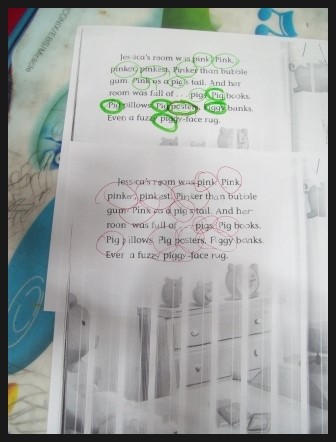 Jessica's room was pink. Pink,
pinker, pinkest. Pinker than bubble
gum. Pink as a pig's tail. And her
room was full of . . . pigs. Pig books.
Pig pillows. Pig posters. Piggy banks.
Even a fuzzy piggy-face rug.
Jessica's room was pink. Pink,
pinker, pinkest. Pinker than bubble
gum. Pink as a pig's tail. And her
room was full of . . . pigs. Pig books.
Pig pillows. Pig posters. Piggy banks.
Even a fuzzy piggy-face rug.